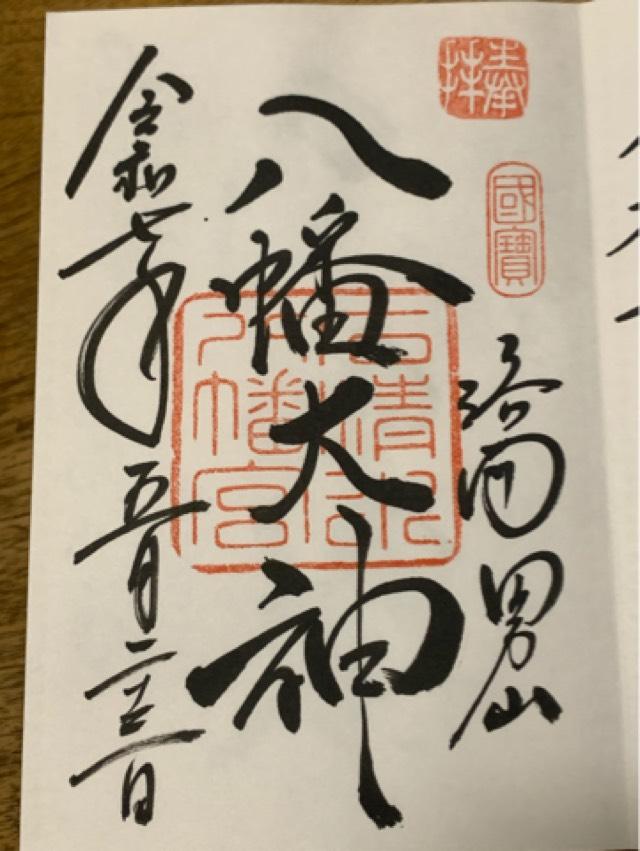 奉拝
國寶
洛南 男山
八幡大神
石清水
八幡宮
令和七年五月二十三日